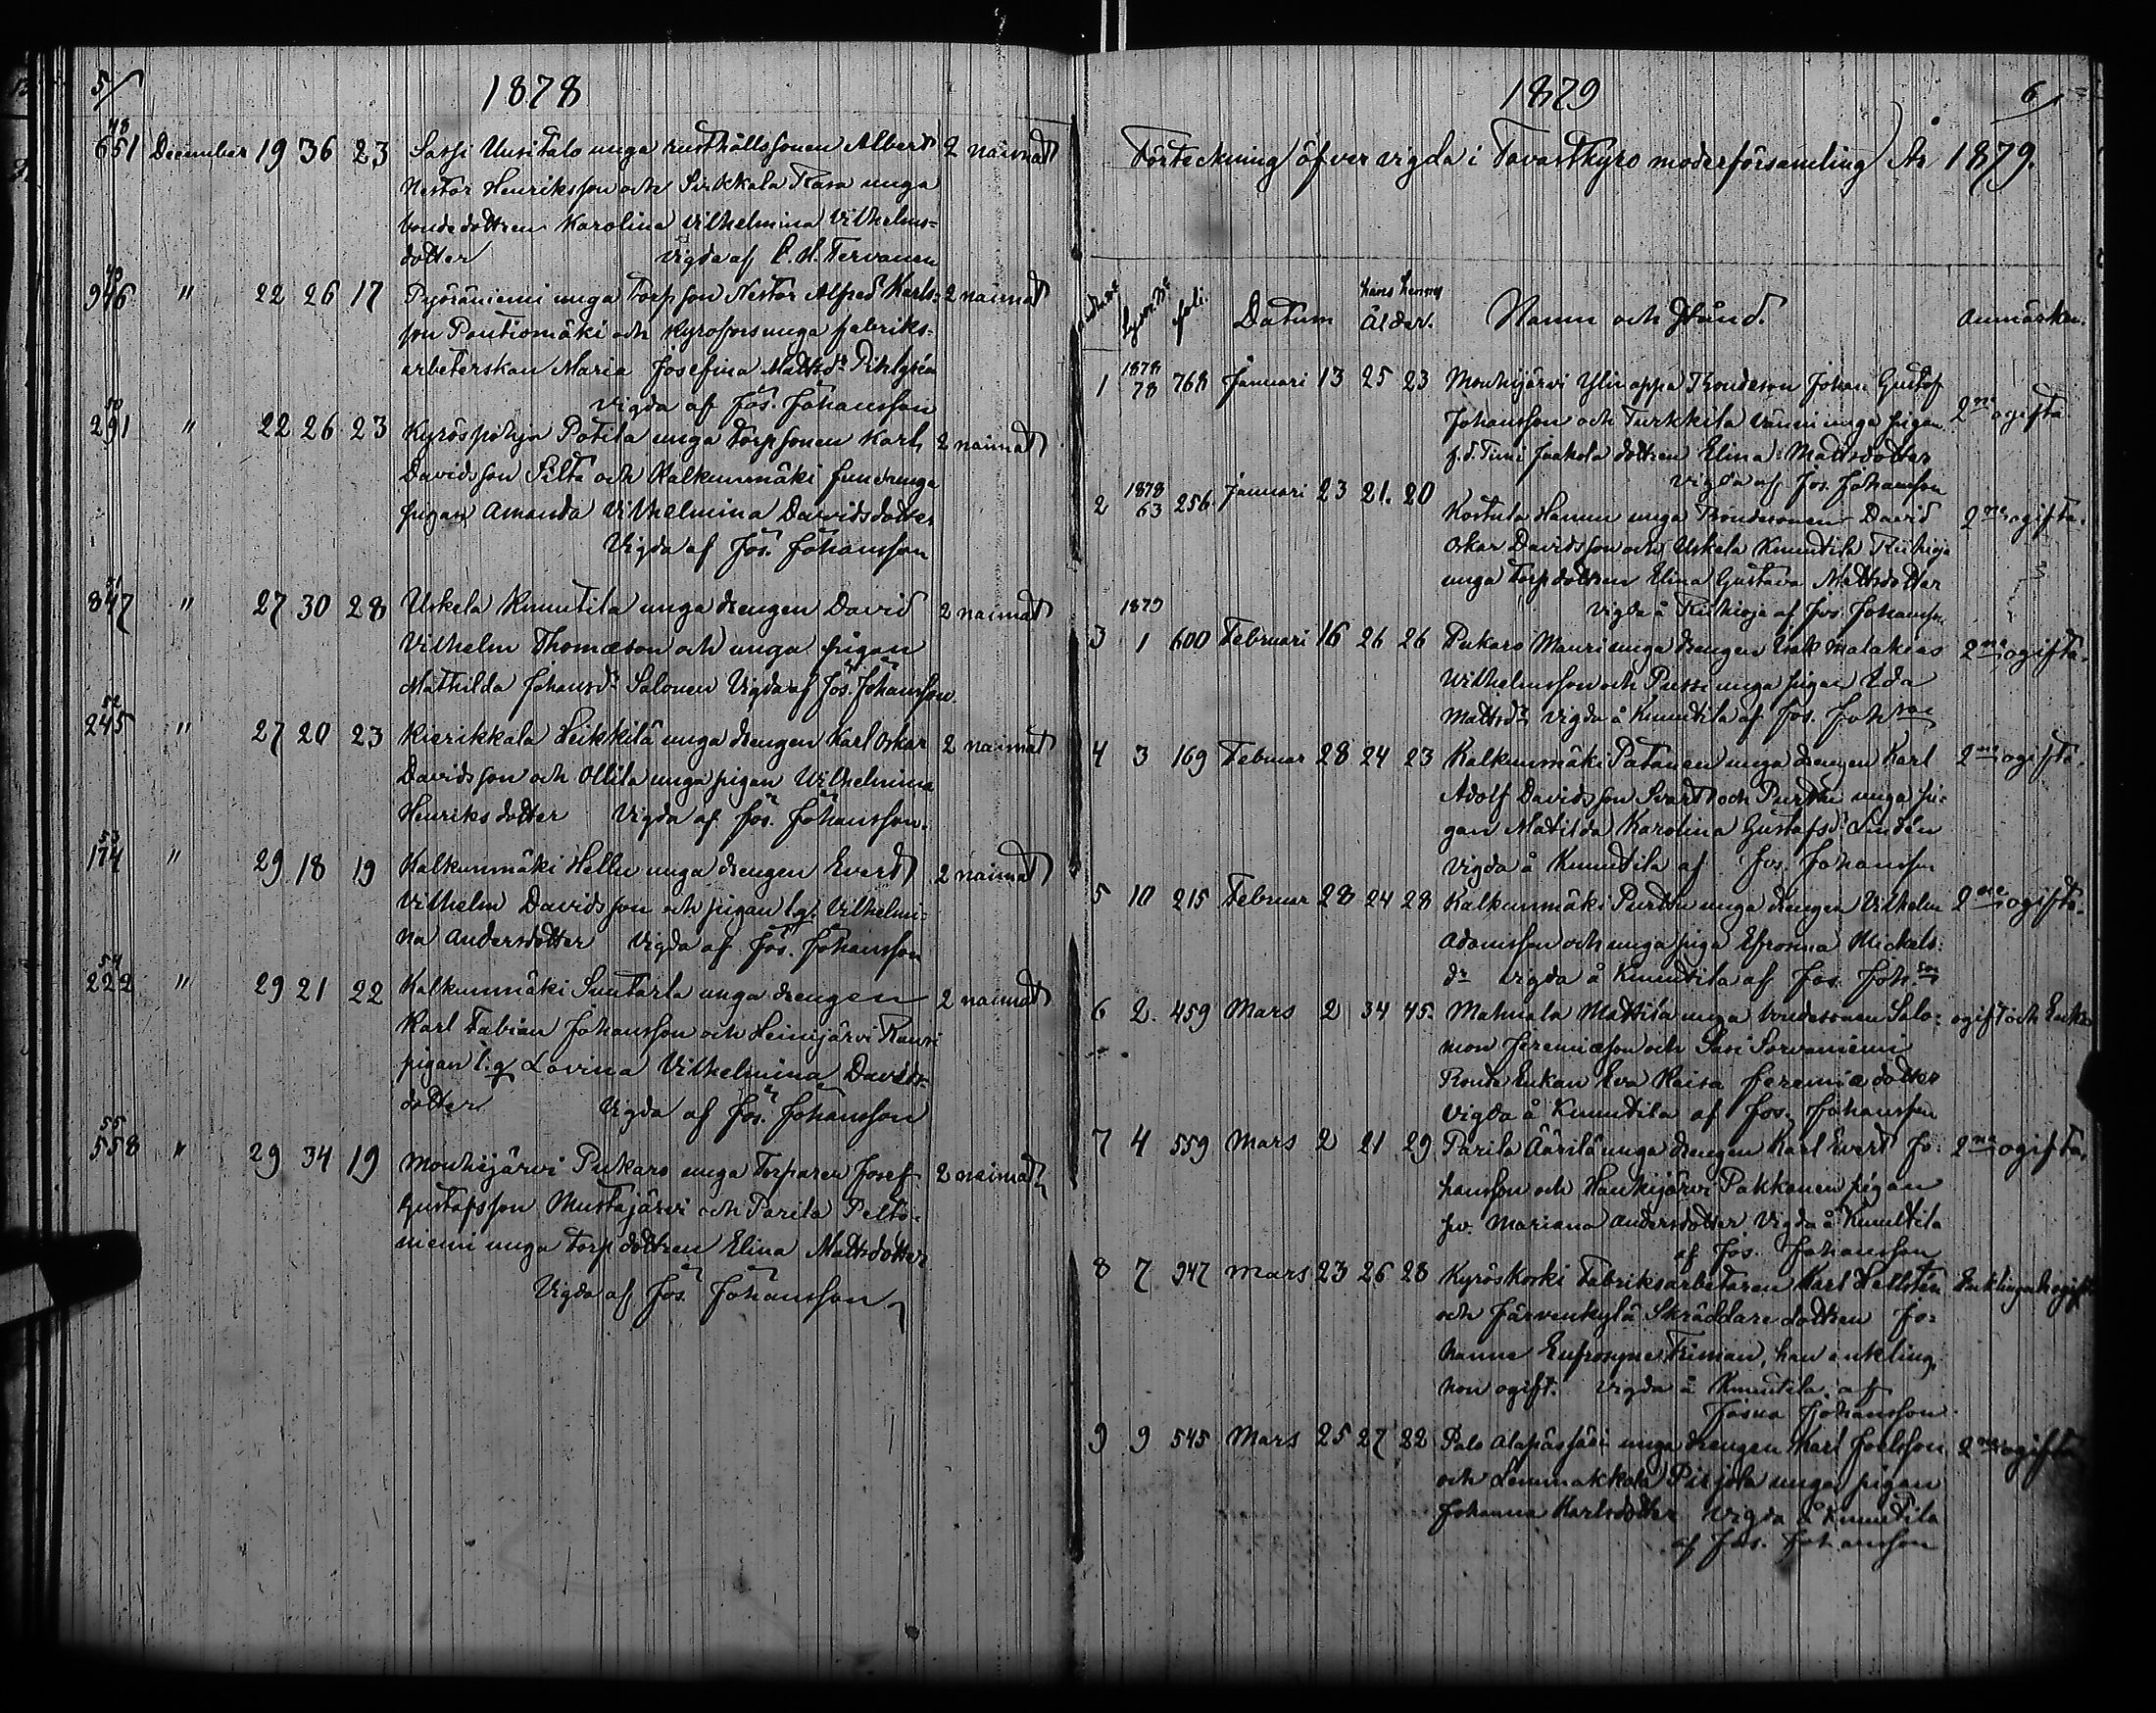 5/
1878
48
651 December 19 36 23 Sassi Uusitalo unga rusthållssonen Albert 2 naimat
Nestor Henriksson och Sirkkala Rasa unga
bondedottren Karolina Vilhelmina Vilhelms-
dotter Vigda af C. H. Tervanen
49
946 " 22 26 17 Pyöräniemi unga torpson Nestor Alfred Karls- 2 naimat
son Pontiomäki och Kyrofors unga fabriks-
arbeterskan Maria Josefina Mattsdr
Vigda af Jos. Johansson
50
291 " 22 26 23 Kyröspohja Potila unga torpsonen Karl 2 naimat
Davidsson Silta och Kalkunmäki unga
pigan Amanda Vilhelmina Davidsdotter
Vigda af Jos. Johansson
51
847 " 27 30 28 Uskela Knuutila unga drengen David 2 naimat
Vilhelm Thomæson och unga pigan
Mathilda Johansdr Salonen Vigda af Jos. Johansson
52
245 " 27 20 23 Kierikkala Heikkilä unga drengen Karl Oskar 2 naimat
Davidsson och Ollila unga pigan Wilhelmina
Henriksdotter Vigda af Jos. Johansson.
53
174 " 29 18 19 Kalkunmäki Hellu unga drengen Evert 2 naimat
Vilhelm Davidsson och pigan l.q. Vilhelmi-
na Andersdotter Vigda af Jos. Johansson
54
222 " 29 21 22 Kalkunmäki Suutarla unga drengen 2 naimat
Karl Fabian Johansson och Heinijärvi Rauvi
pigan l.q Lovina Vilhelmina Davids-
dotter Vigda af Jos. Johansson
55
558 " 29 34 19 Mouhijärvi Pukaro unga Torparen Josef 2 naimat
Gustafsson Mustajärvi och Parila Pelto-
niemi unga torpdottren Elina Mattsdotter
Vigda af Jos. Johansson
1879
6/
Förteckning öfver vigda i Tavastkyro moderförsamling År 1879.
foli. Datum hans hennes Ålder. Namn och Stånd. Anmärkn.
1 1878 78 768 Januari 13 25 23 Mouhijärvi Yliuoppa Bondeson Johan Gustaf
Johansson och Turkkila Vänni unga pigan 2ne ogifta
f.d. Timi Jaakola dottren Elina Mattsdotter
Vigda af Jos. Johansson
2 1878 63 256 Januari 23 21. 20 Kostula Hannu unga Bondesonen David 2ne ogifta.
Oskar Davidsson och Uskela Knuutila Riihioja
unga torpdottren Elina Gustava Mattsdotter
Vigda å Riihioja af Jos. Johansson
1879
3 1 600 Februari 16 26 26 Pukaro Mauri unga drengen Isak Malakias 2ne ogifta.
Wilhelmsson och Pussi unga pigan Ida
Mattsdr vigda å Knuutila af Jos. Johson
4 3 169 Februar 28 24 23 Kalkunmäki Patanen unga drengen Karl 2ne ogifta.
Adolf Davidsson Svart och Purttu unga pi-
gan Matilda Karolina Gustafsdr Lindén
vigda å Knuutila af Jos. Johansson
5 10 215 Februar 28 24 28 Kalkunmäki Purttu unga drengen Vilhelm 2ne ogifta.
Adamsson och unga piga Efrosina Mickels-
dr vigda å Knuutila af Jos. Joh.son
6 2. 459 Mars 2 34 45. Mahnala Mattila unga bondesonen Salo- ogift och Enka
mon Jeremiæson och Sasi Sorvaniemi
Bonde Enkan Eva Kaisa Jeremiædotter
vigda å Knuutila af Jos. Johansson
7 4 559 Mars 2 21 29 Parila Äärilä unga drengen Karl Evert Jo- 2ne ogifta.
hansson och Haukijärvi Pakkanen pigan
Mariana Andersdotter Vigda å Knuutila
af Jos. Johansson
8 7 947 Mars 23 26 28 Kyröskoski Fabriksarbetaren Karl Hellstén Enkling och ogift
och Järvenkylä Skräddaredottren Jo-
hanna Eufrosyne Friman, han enkling,
hon ogift. Vigda å Knuutila af
Josua Johansson
9 9 545 Mars 25 27 22 Palo Alapässäri unga drengen Karl Joelsson 2ne ogifta
och Lemmakkala Pirjola unga pigan
Johanna Karlsdotter vigda å Knuutila
af Jos. Johansson